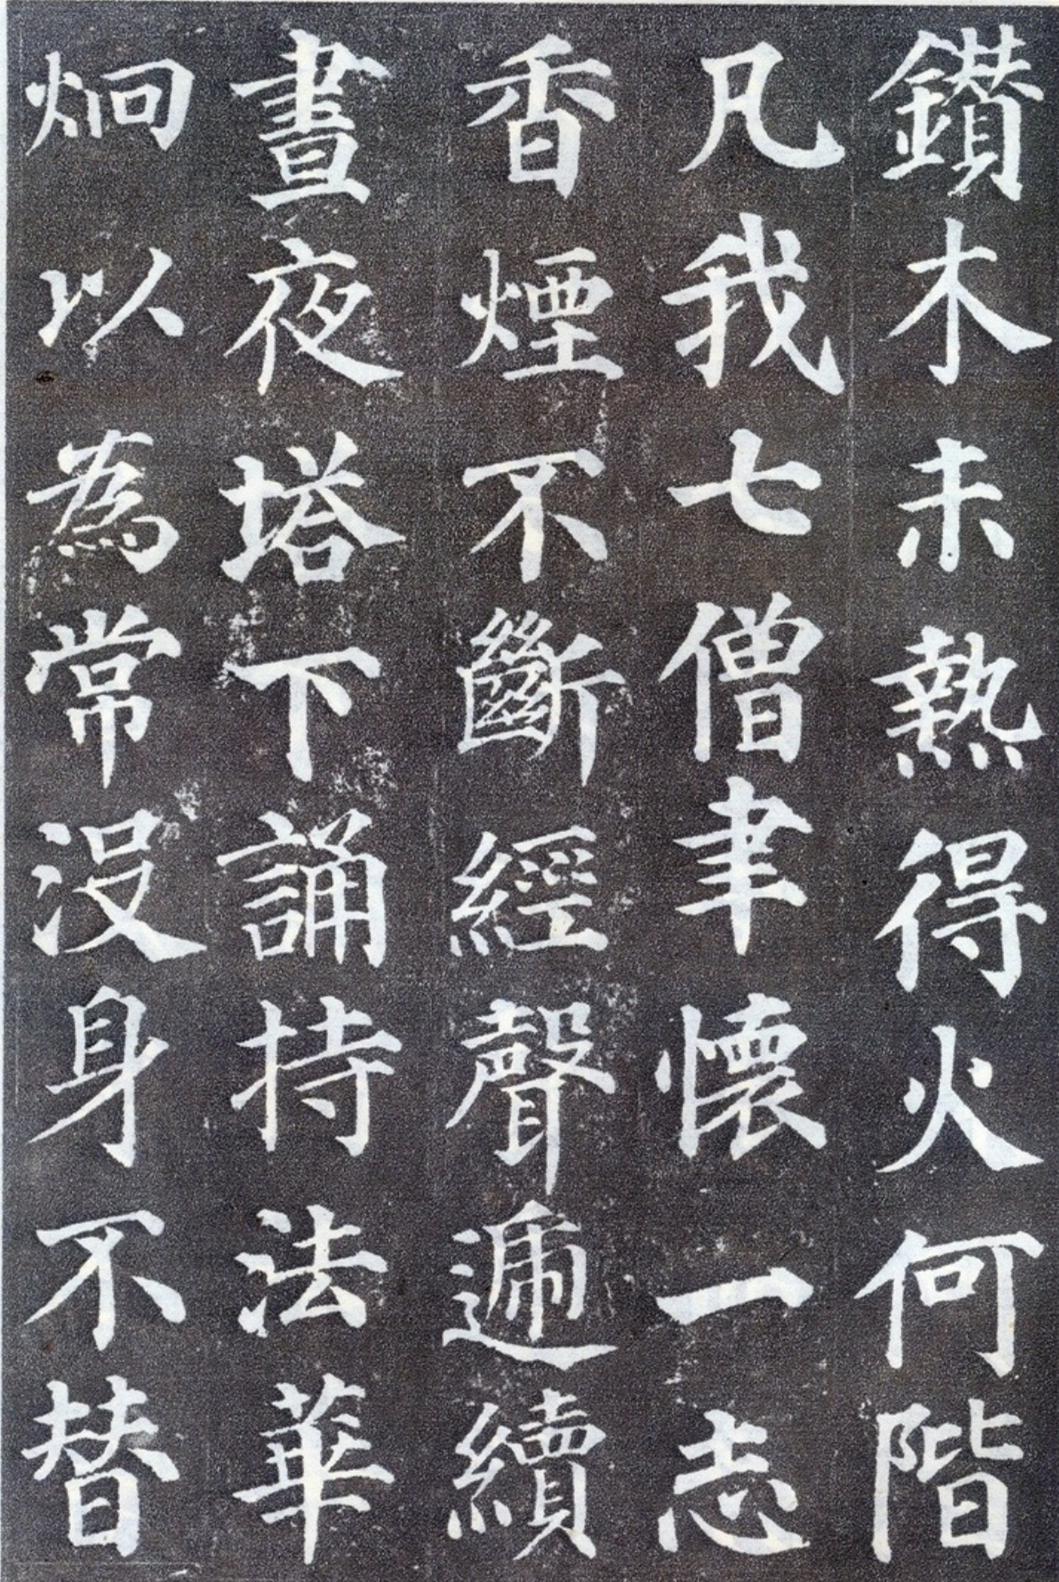 鑚木未熱得火何階
凡我七僧聿懷一志
香煙不斷經聲遞續
晝夜塔下誦持法華
炯以為常没身不替